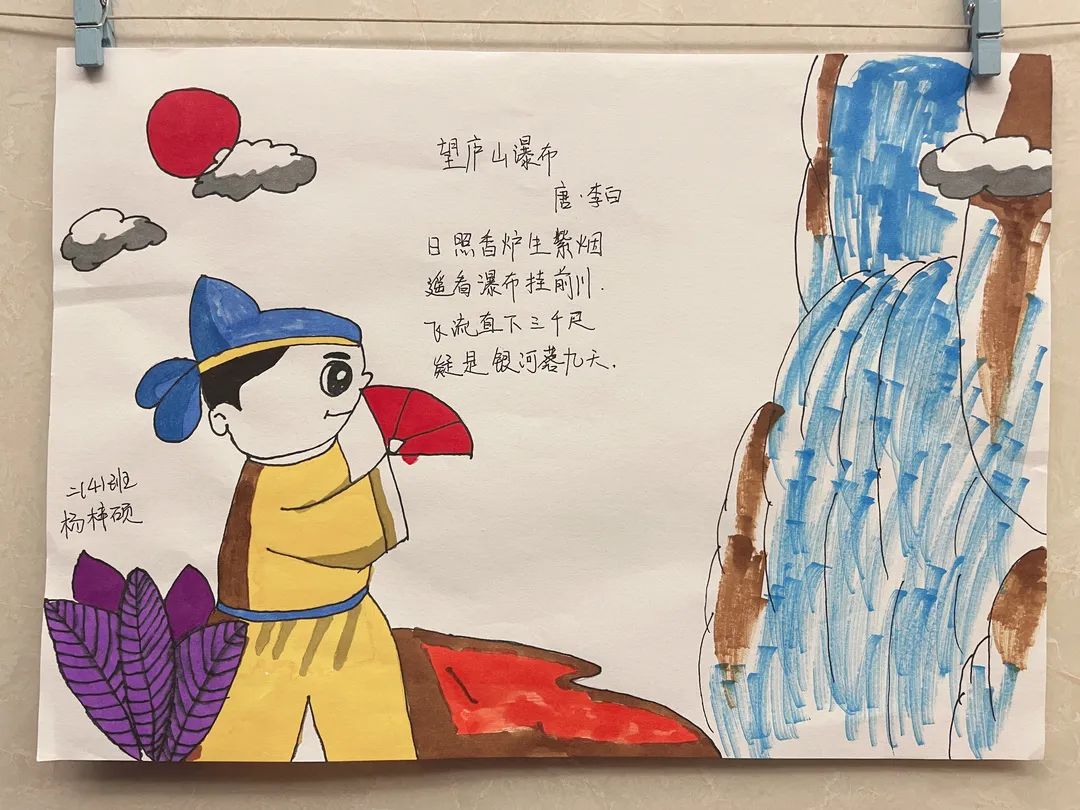 望庐山瀑布
唐·李白
日照香炉生紫烟
遥看瀑布挂前川.
飞流直下三千尺
疑是银河落九天.
二(4)班
杨梓硕